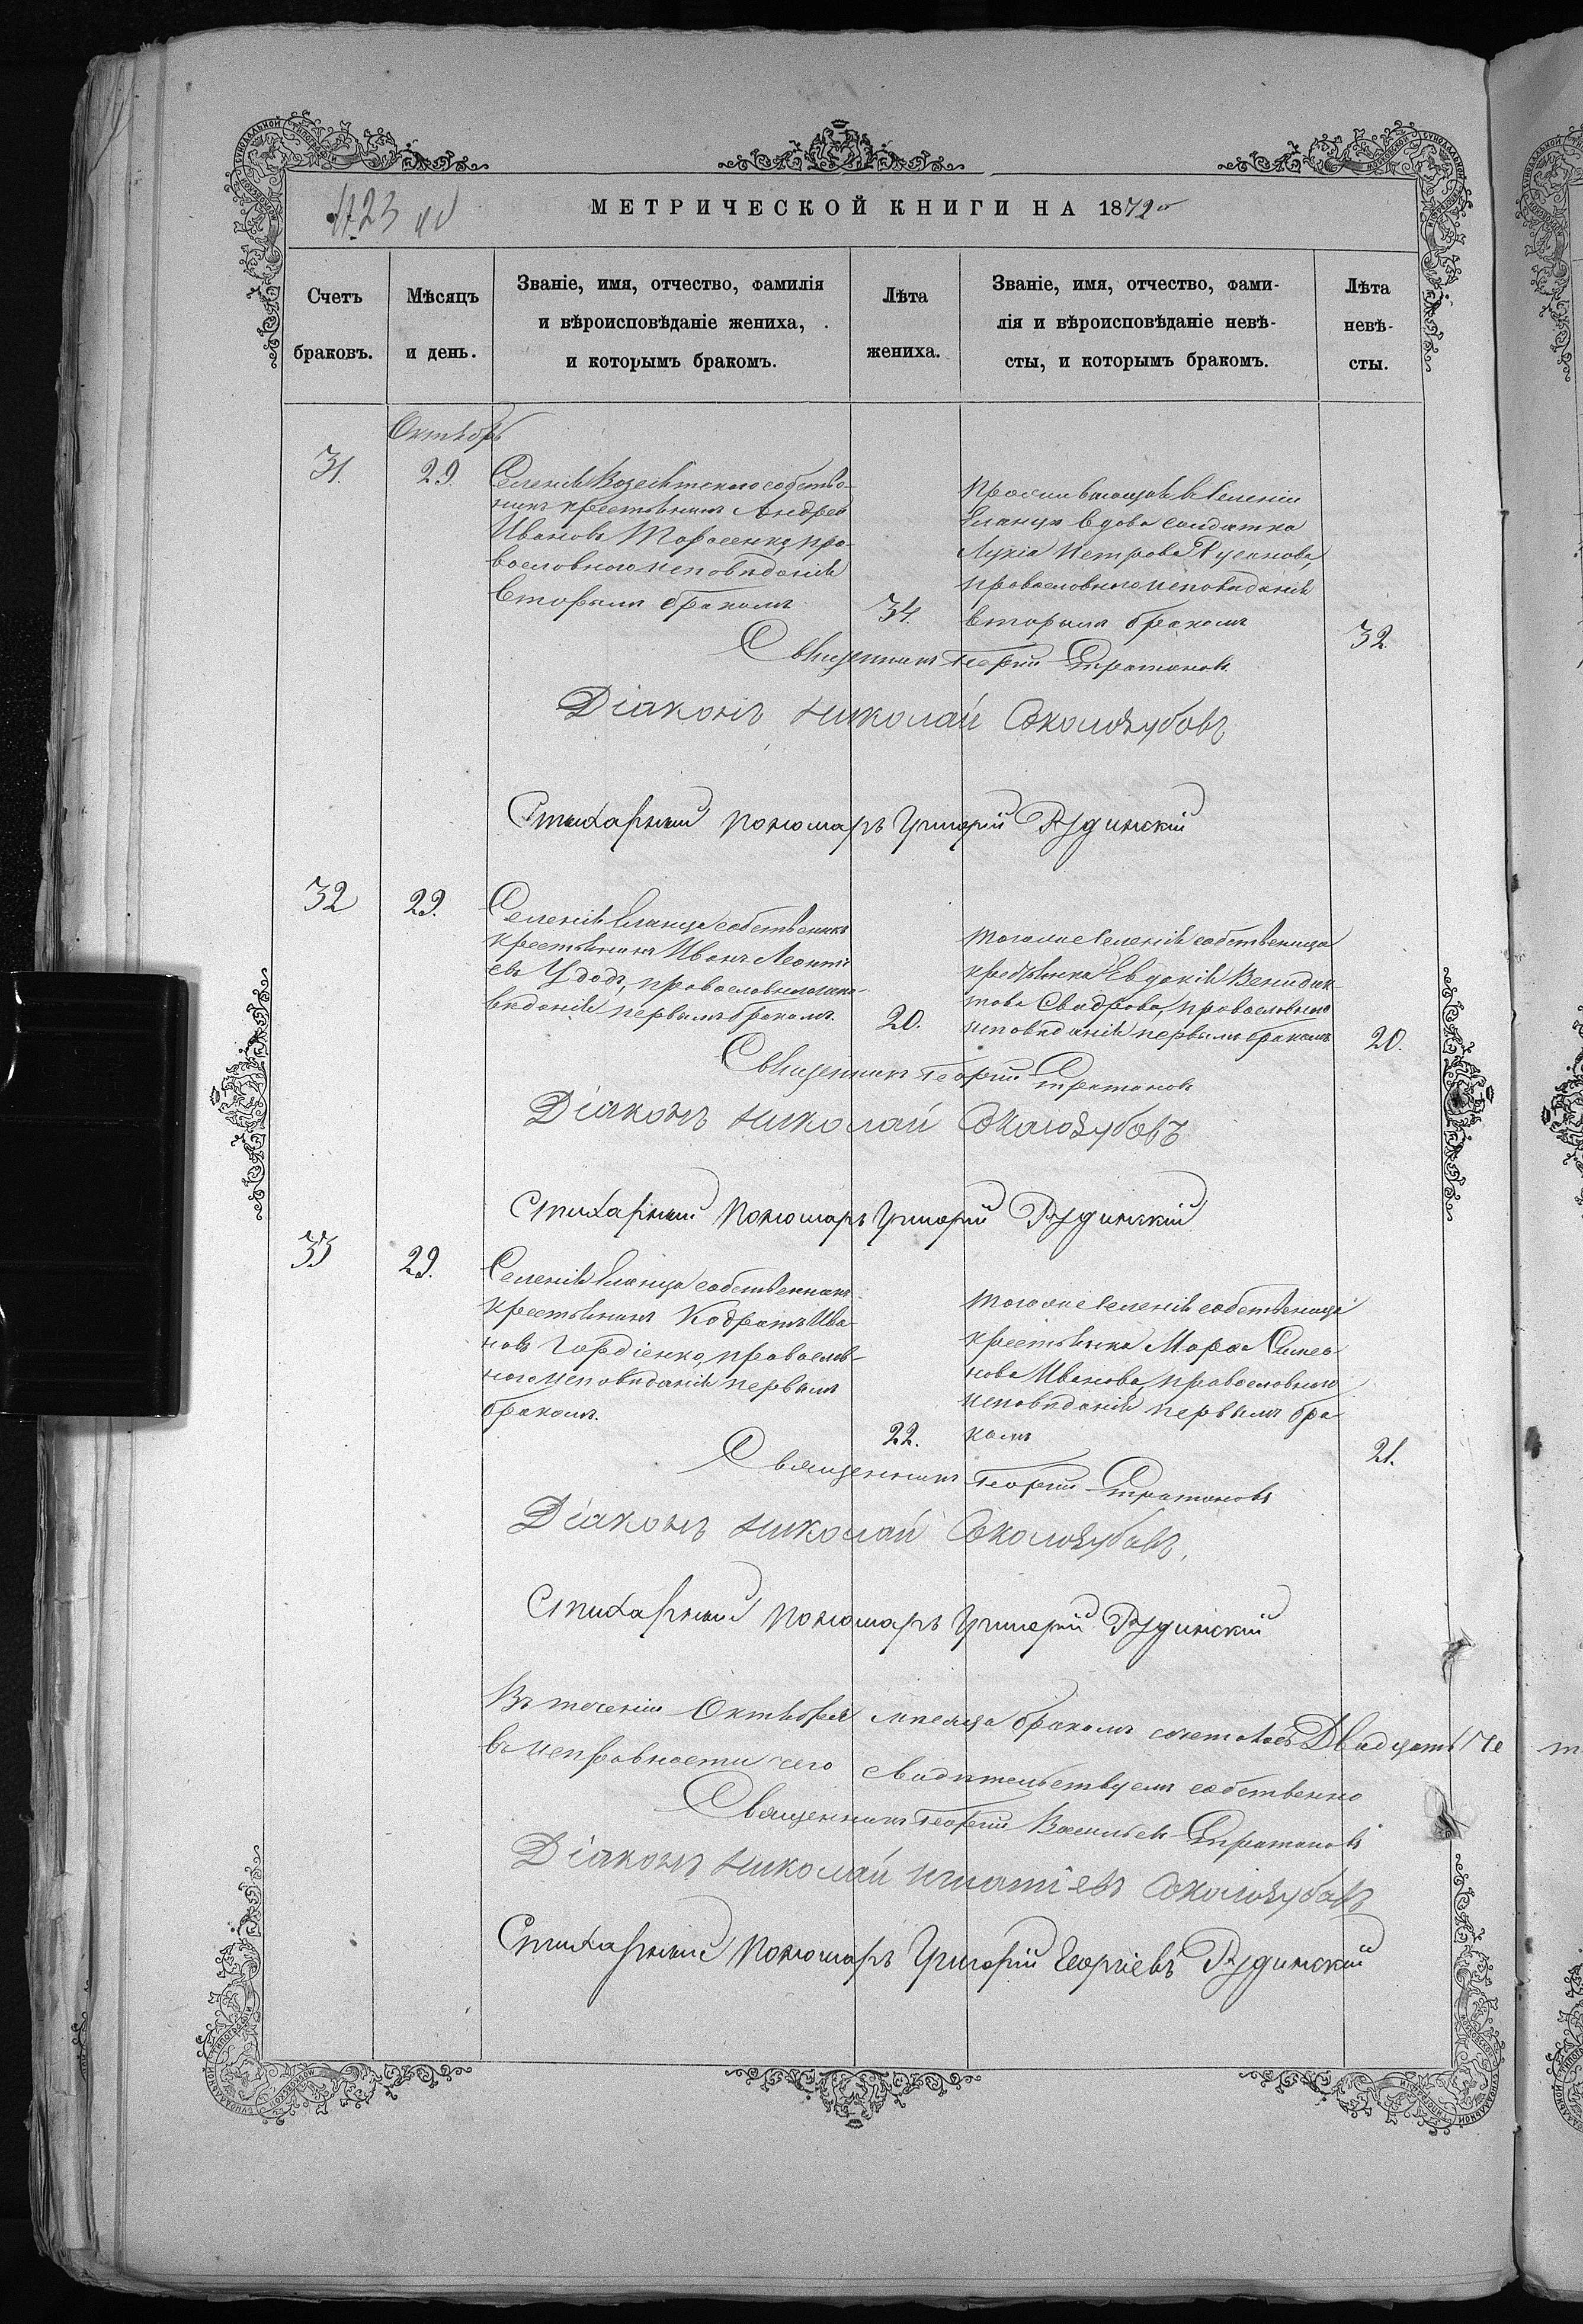 МЕТРИЧЕСКОЙ КНИГИ НА 1872й
Счетъ браковъ.
Мѣсяцъ и день.
Званіе, имя, отчество, фамилія
и вѣроисповѣданіе жениха,
и которымъ бракомъ.
Лѣта жениха.
Званіе, имя, отчество, фами-
лія и вѣроисповѣданіе невѣ-
сты, и которымъ бракомъ.
Лѣта невѣ-
сты.
Октябрь
31.
29.
Селенія собстве-
никъ крестьянинъ Андрей
Ивановъ Тарасенко, пра-
вославнаго исповѣданія
вторымъ бракомъ
34.
Проживающая в селеніи
Еланца вдова солдатка
Лукія Петрова Русанова,
православнаго исповѣданія
вторымъ бракомъ
32.
Священникъ Георгій Стратоновъ
Діаконъ Николай Соколозубовъ
Стихарный пономарь Григорій Рудинскій
32
29.
Селенія Еланца собственикъ
крестьянинъ Иванъ Леонті-
евъ Удодъ, православнаго испо-
вѣданія первымъ бракомъ.
20.
Тогоже селенія собственица
крестьянка Евдокія Венидик-
това Свидрова, православнаго
исповѣданія первымъ бракомъ
20.
Священникъ Георгій Стратоновъ
Діаконъ Николай Соколозубовъ
Стихарный Пономарь Григорій Рудинскій
33
29.
Селенія Еланца собственникъ
крестьянинъ Кодратъ Ива-
новъ Гордіенко, православ-
наго исповѣданія первымъ
бракомъ.
22.
Тогоже селенія собственица
крестьянка Марфа Симео-
нова Иванова, православнаго
исповѣданія первымъ бра-
комъ
21.
Священникъ Георгій Стратоновъ
Діаконъ Николай Соколозубовъ.
Стихарный пономарь Григорій Рудинскій
Въ теченіи Октября мѣсяца бракомъ сочеталось Двадцать че
въ исправности чего свидѣтельствуемъ собственно
Священникъ Георгій Васильевъ Стратоновъ
Діаконъ Николай Игнатіевъ Соколозубовъ
Стихарный Пономарь Григорій Георгіевъ Рудинскій